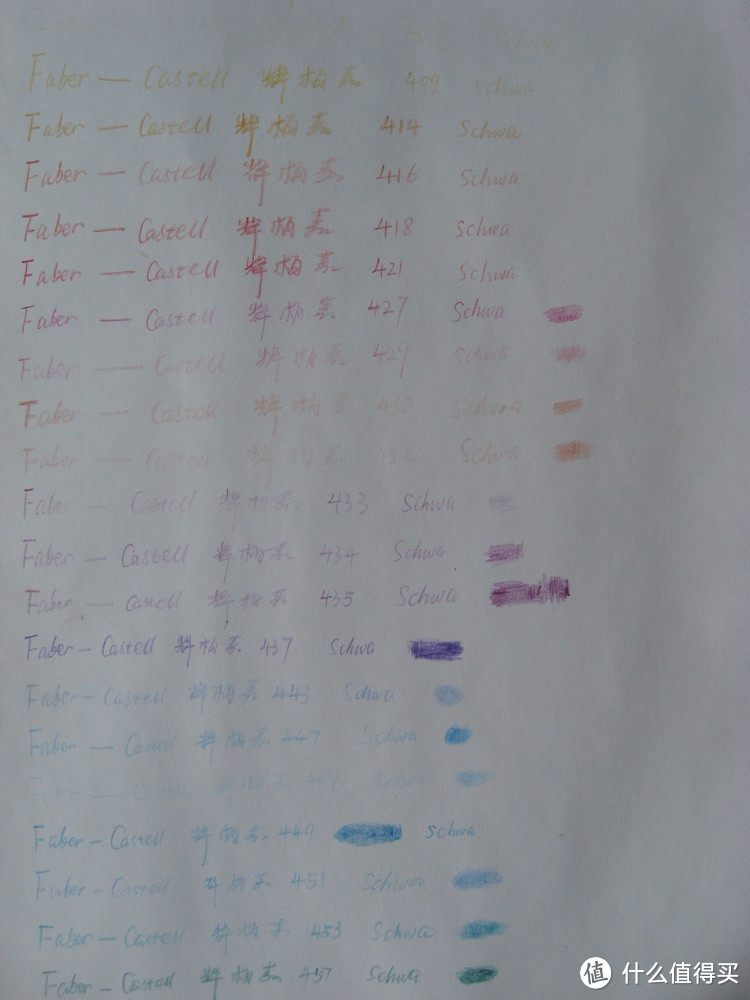 Faber — Castell 辉柏嘉 409 Schwa
Faber — Castell 辉柏嘉 414 Schwa
Faber — Castell 辉柏嘉 416 Schwa
Faber — Castell 辉柏嘉 418 Schwa
Faber — Castell 辉柏嘉 421 Schwa
Faber — Castell 辉柏嘉 427 Schwa
Faber — Castell 辉柏嘉 429 Schwa
Faber — Castell 辉柏嘉 430 Schwa
Faber — Castell 辉柏嘉 432 Schwa
Faber — Castell 辉柏嘉 433 Schwa
Faber — Castell 辉柏嘉 434 Schwa
Faber — Castell 辉柏嘉 435 Schwa
Faber — Castell 辉柏嘉 437 Schwa
Faber — Castell 辉柏嘉 443 Schwa
Faber — Castell 辉柏嘉 447 Schwa
Faber — Castell 辉柏嘉 Schwa
Faber — Castell 辉柏嘉 449 Schwa
Faber — Castell 辉柏嘉 451 Schwa
Faber — Castell 辉柏嘉 453 Schwa
Faber — Castell 辉柏嘉 457 Schwa
值 什么值得买